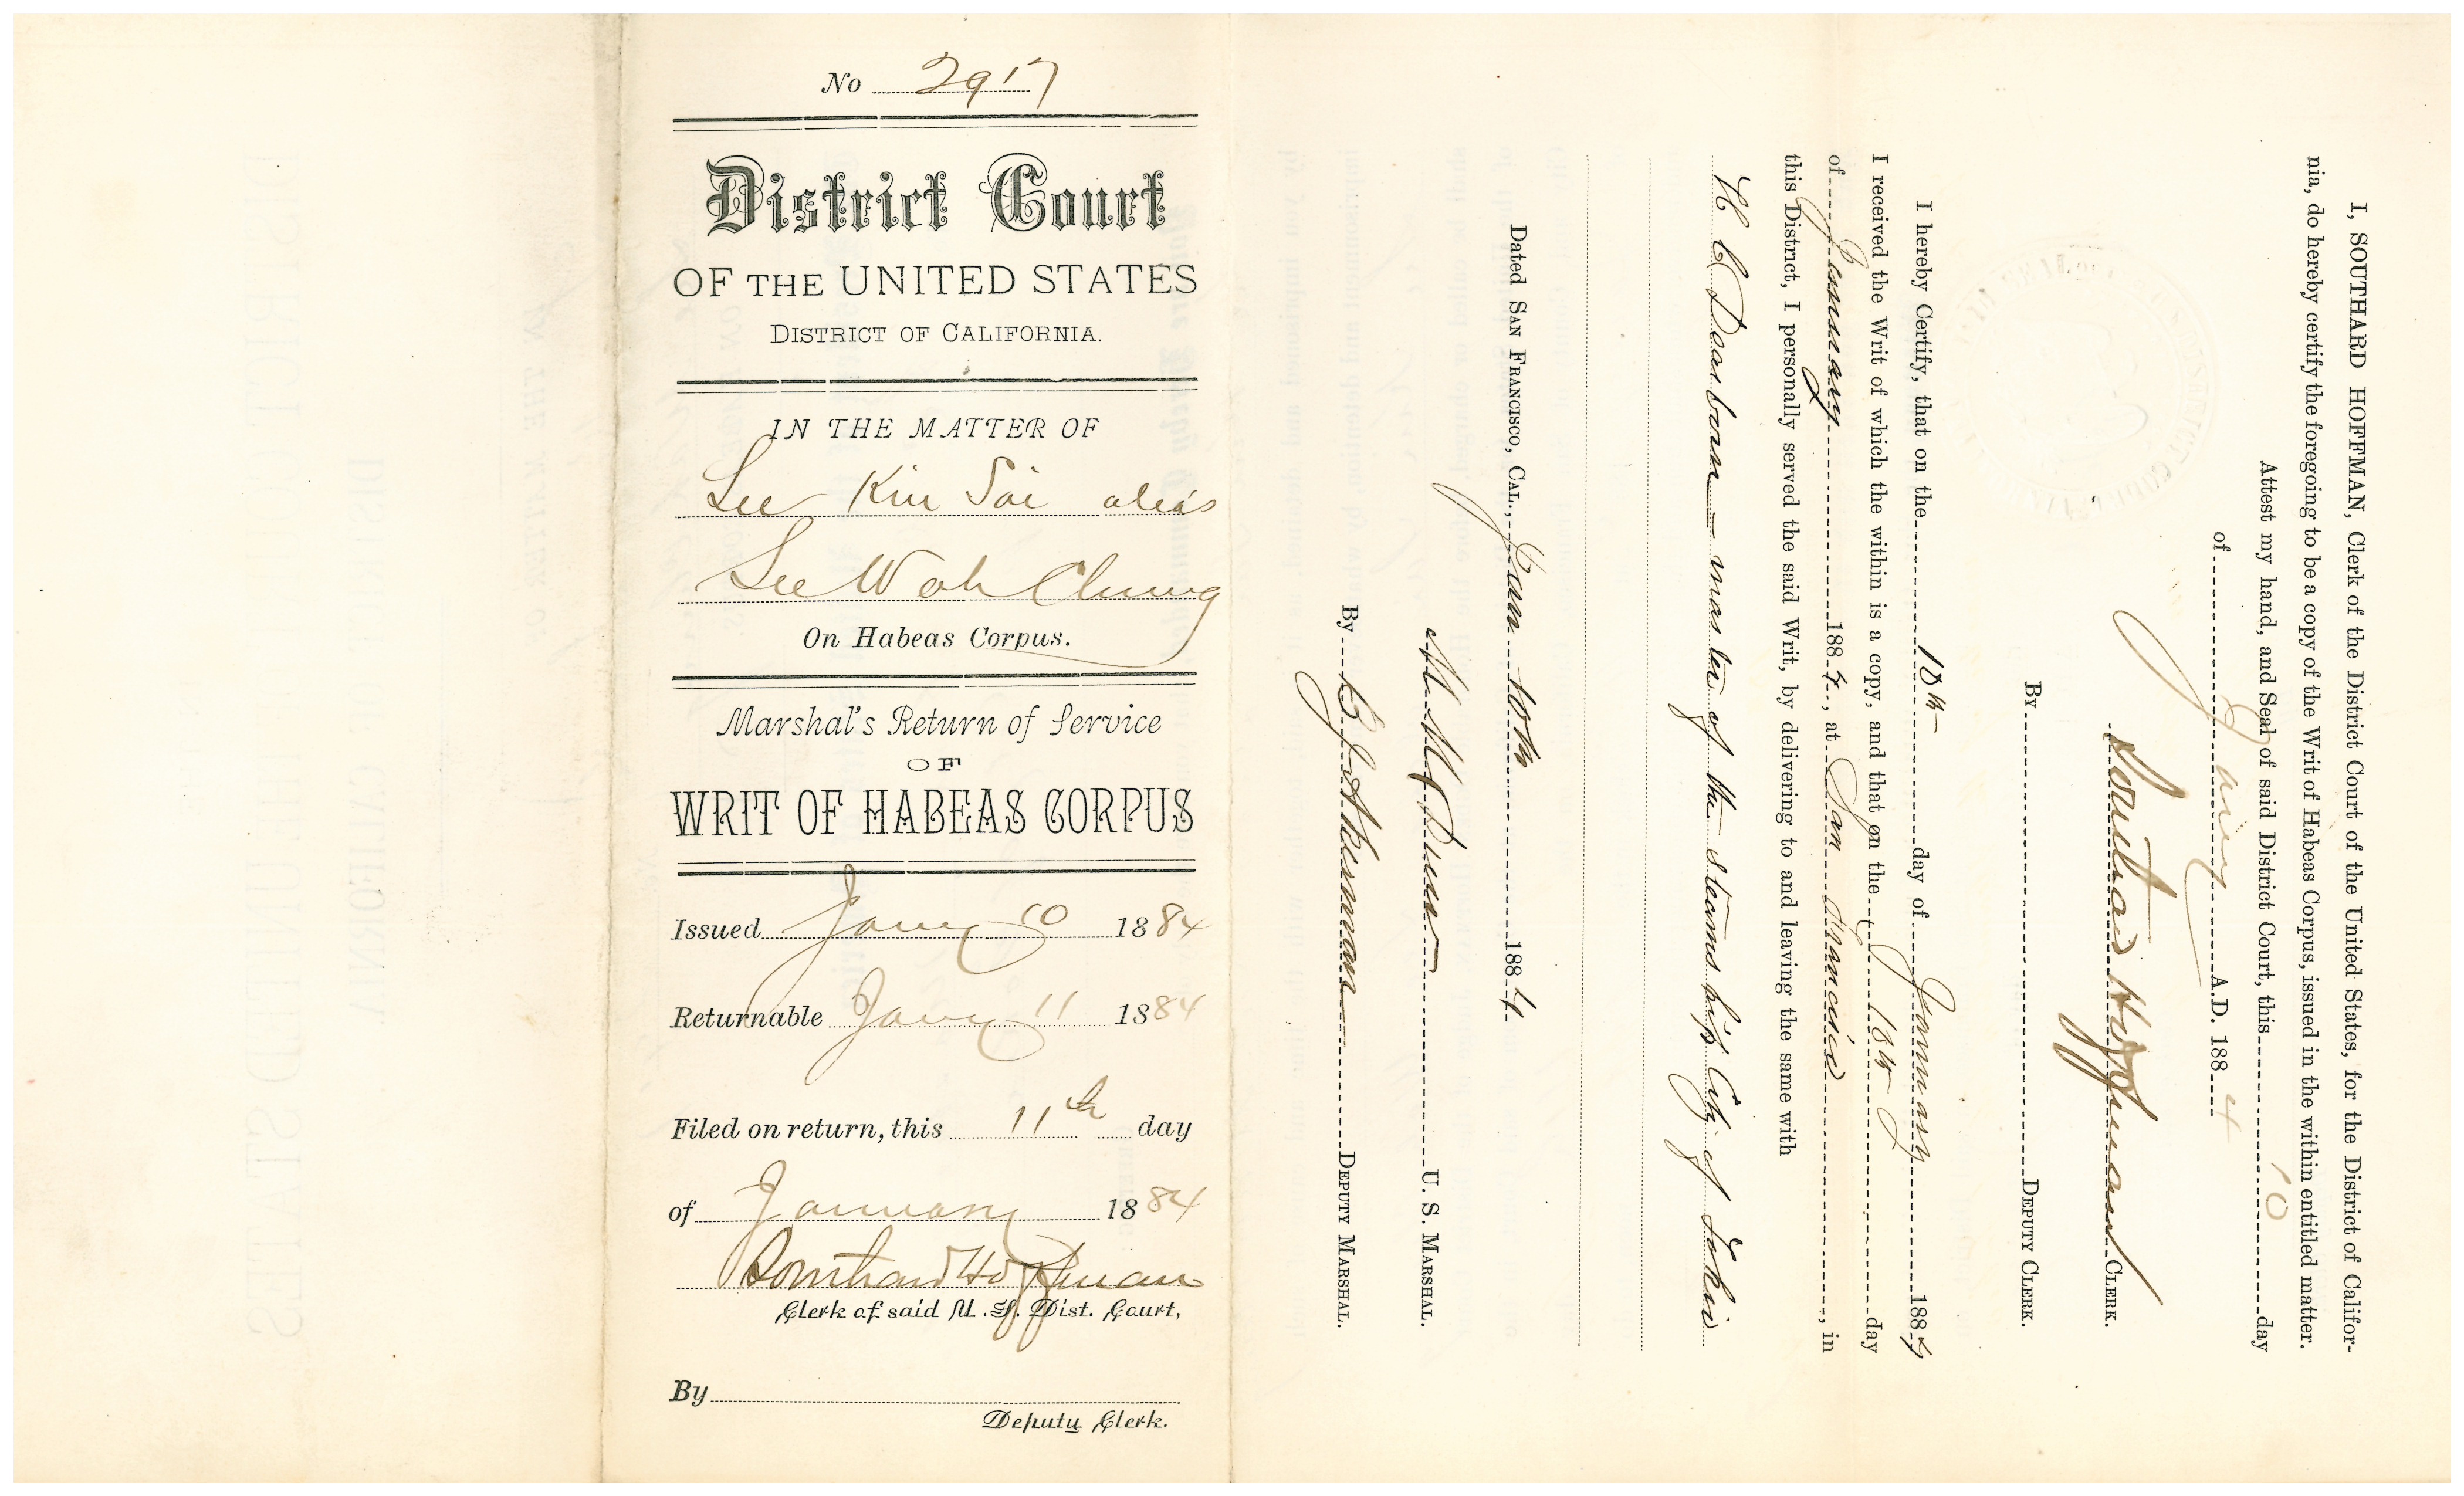 No 2917
District Court
OF THE UNITED STATES
DISTRICT OF CALIFORNIA.
IN THE MATTER OF
See Kim Soi alias
See Wah Chung
On Habeas Corpus.
Marshal's Return of Service
OF
WRIT OF HABEAS CORPUS
Issued Jany 10 1884
Returnable Jany 11 1884
Filed on return, this 11th day
of January 1884
Southard Hoffman
Clerk of said U. S. Dist. Court,
By
Deputy Clerk.
I, SOUTHARD HOFFMAN, Clerk of the District Court of the United States, for the District of Califor-
nia, do hereby certify the foregoing to be a copy of the Writ of Habeas Corpus, issued in the within entitled matter.
Attest my hand, and Seal of said District Court, this 10 day
of Jany A.D. 1884
Southard Hoffman CLERK.
By DEPUTY CLERK.
I hereby Certify, that on the 10th day of January 1884
I received the Writ of which the within is a copy, and that on the 10th day
of January 1884, at San Francisco, in
this District, I personally served the said Writ, by delivering to and leaving the same with
H C Dearborn - master of the steamship City of Tokio
Dated SAN FRANCISCO, CAL., Jany 10th 1884.
U. S. MARSHAL.
By DEPUTY MARSHAL.